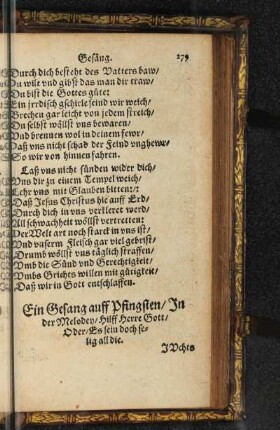 Gesäng. 279
Durch dich besteht des Vatters baw/
Du wilt vnd gibst das man dir traw/
Du bist die Gottes güte:
Ein jrrdisch gschirle seind wir weich/
Brechen gar leicht von jedem streich/
Du selbst wöllst vns bewaren/
Vnd brennen wol in deinem fewr/
Daß vns nicht schad der Feind vnghewr
So wir von hinnen fahren.
Laß vns nicht sünden wider dich/
Vns dir zu einem Tempel weich/
Lehr vns mit Glauben bitten:
Daß Jesus Christus hie auff Erd/
Durch dich in vns verkleret werd/
All schwachheit wöllst vertretten:
Der Welt art noch starck in vns ist/
Vnd vnserm Fleisch gar viel gebrist/
Drumb wöllst vns täglich straffen/
Vmb die Sünd vnd Gerechtigkeit/
Vmbs Grichts willen mit gütigkeit/
Daß wir in Gott entschlaffen.
Ein Gesang auff Pfingsten/ In
der Melodey/ Hilff Herre Gott/
Oder/ Es sein doch se-
lig all die.
JVchts